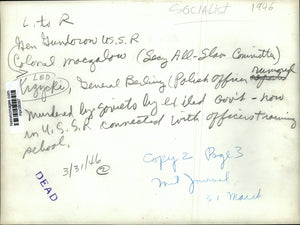 SOCIALIST 1946
L. to R
Gen Gundorov U.S.S.R
Colonel moczalow (Secy All-Slav Committee)
LEO
Krzycki General Berling (Polish Officer rumored
Murdered by Soviets by exiled Gov't - now
in U.S.S.R connected with officers training
school.
3/31/46 2
DEAD
Copy 2 Page 3
Mil Journal
31 March